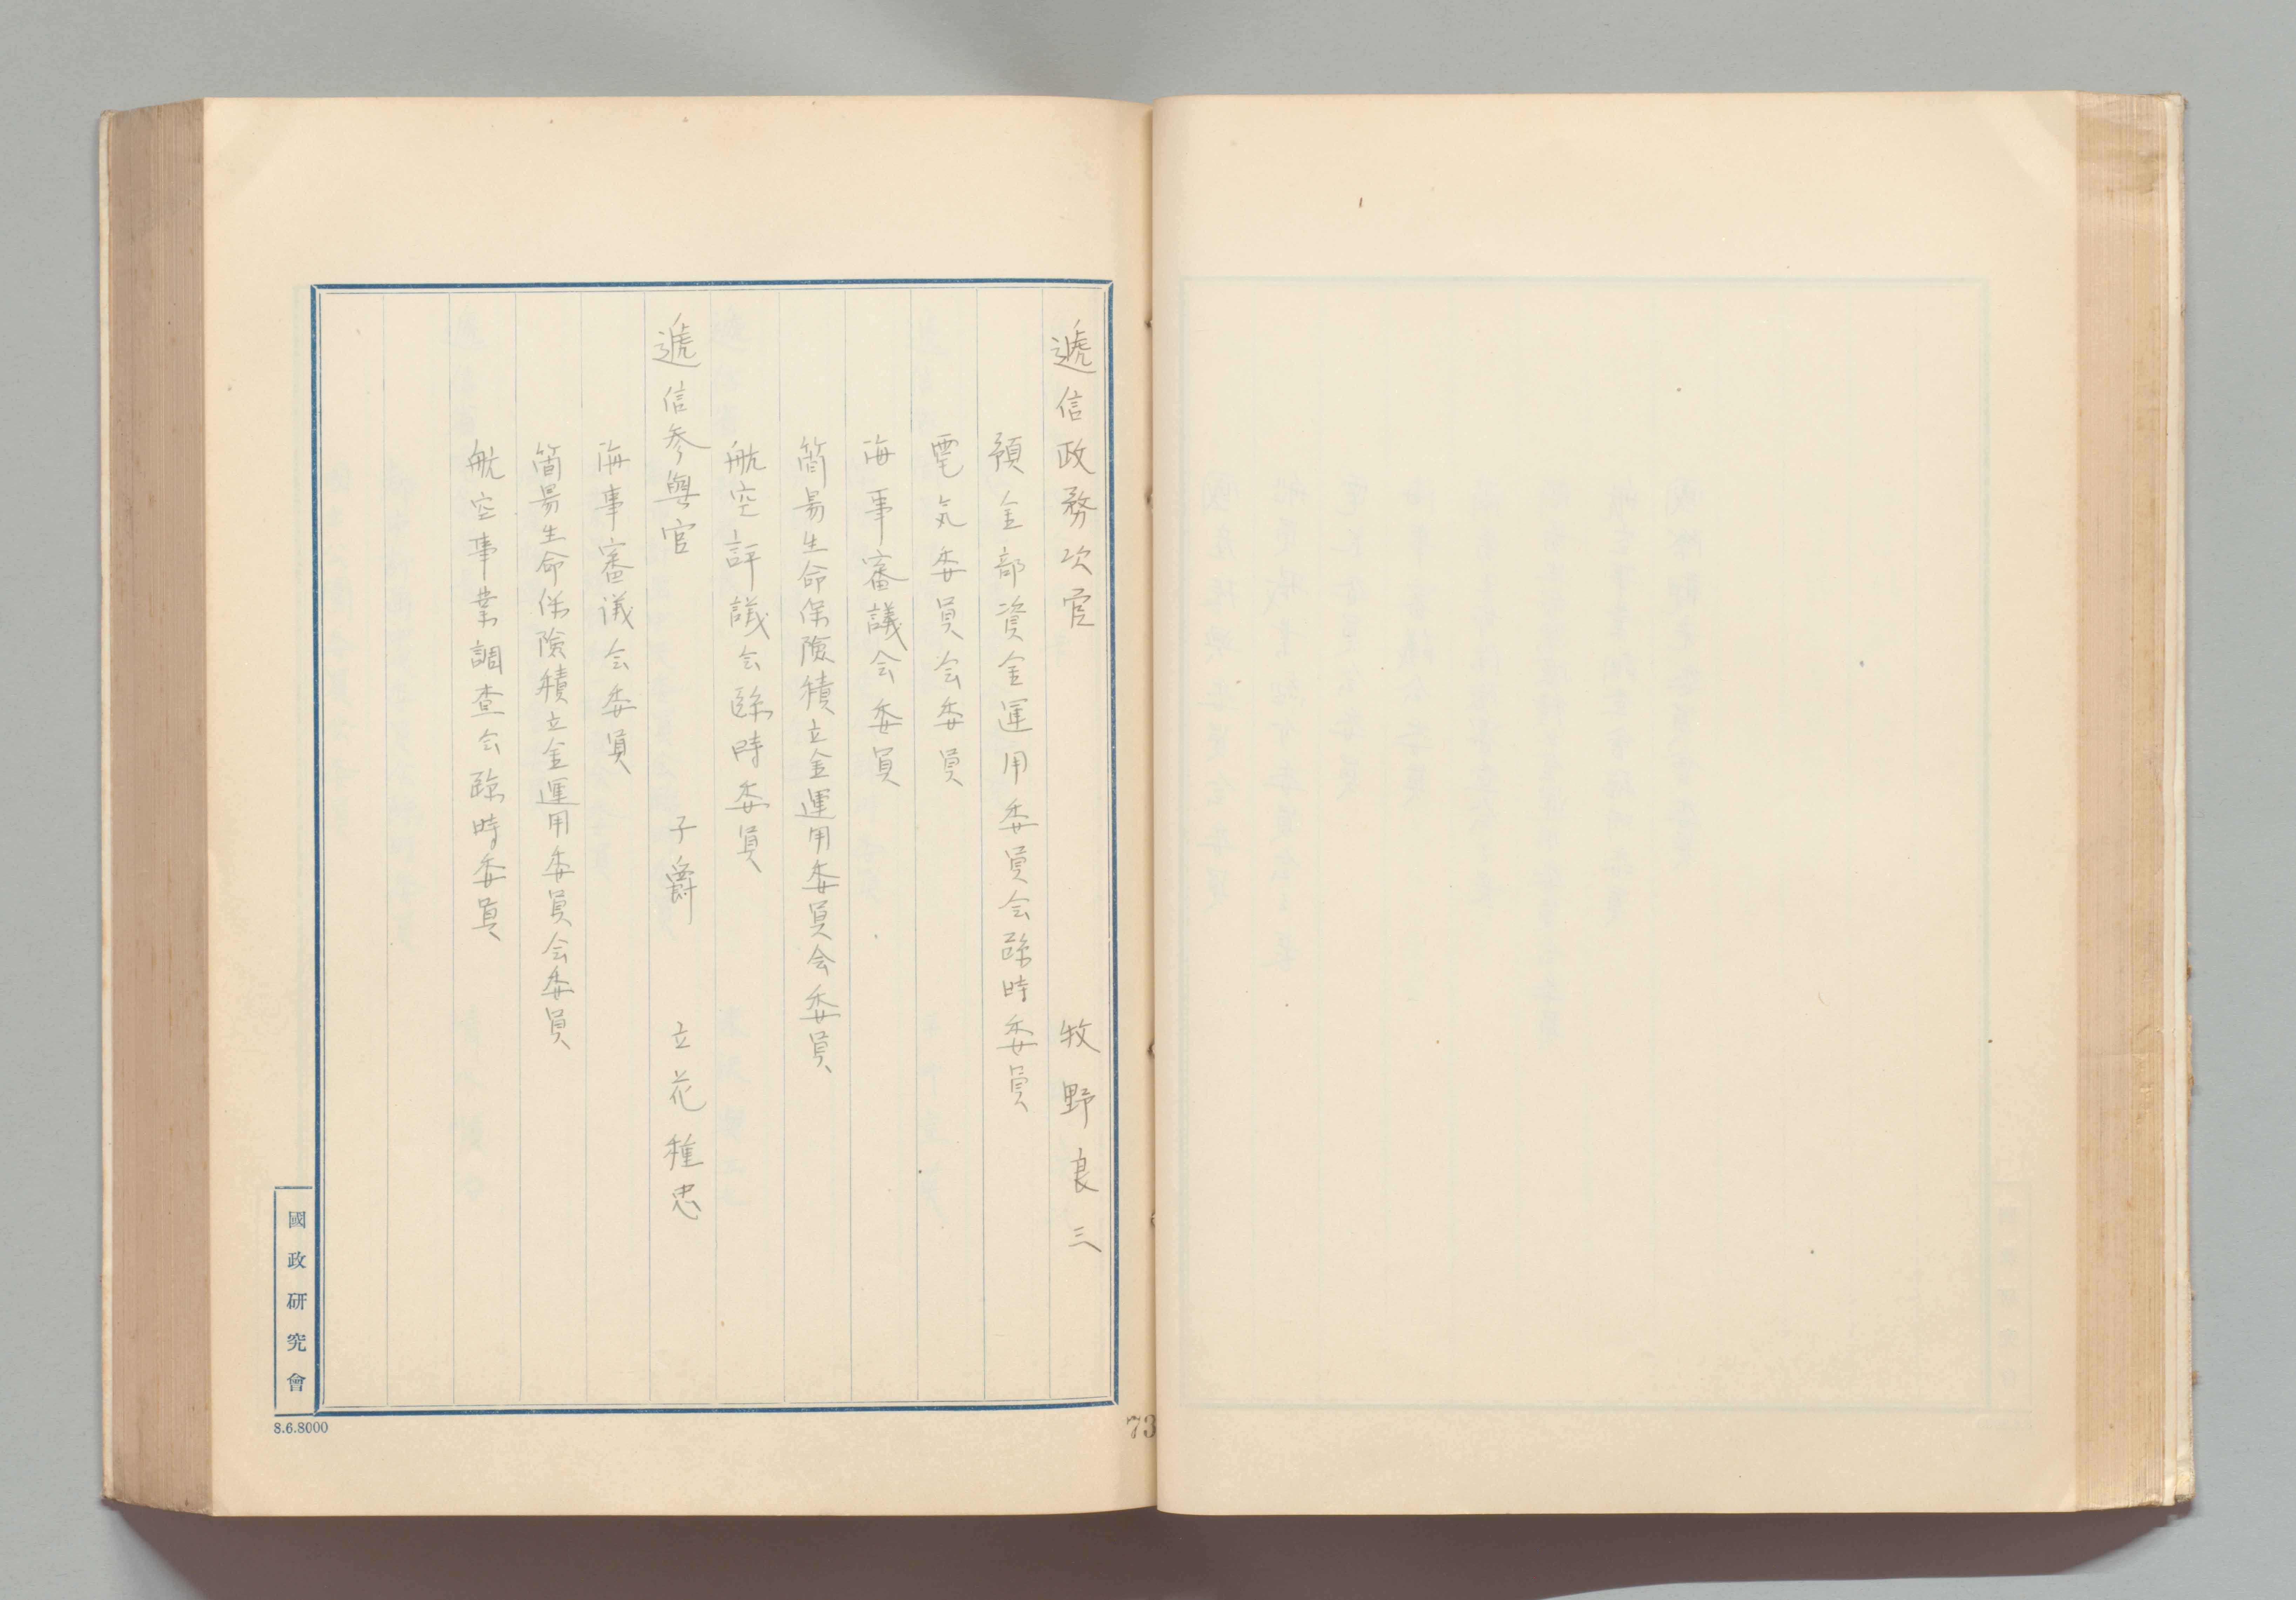 遞信政務次官　牧野良三
預金部資金運用委員会臨時委員
電気委員会委員
海事審議会委員
簡易生命保險積立金運用委員会委員
航空評議会臨時委員
遞信参與官　子爵　立花種忠
海事審議会委員
簡易生命保險積立金運用委員会委員
航空事業調査会臨時委員
國政研究會
8.6.8000
73